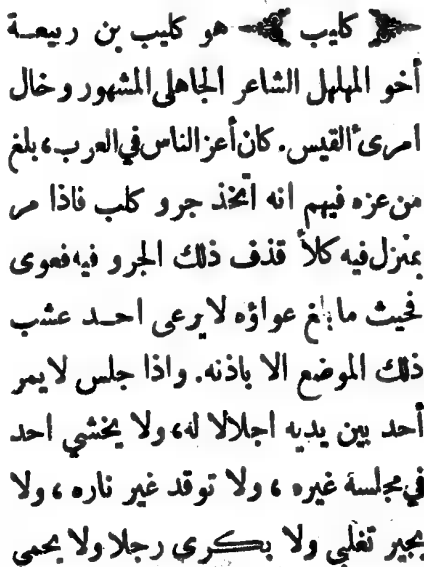 كليب هو كليب بن ربيعة
أخو المهلهل الشاعر الجاهلى المشهور وخال
امرىء القيس. كان أعز الناس في العرب، بلغ
من عزه فيهم انه اتخذ جرو كلب فاذا مر
بمنزل فيه كلأ قذف ذلك الجرو فيه فعوى
فحيث ما بلغ عواؤه لا يرعى احد عشب
ذلك الموضع الا باذنه. واذا جلس لا يمر
أحد بين يديه اجلالا له، ولا يخشي احد
في مجلسة غيره ، ولا توقد غير ناره ، ولا
يجير تغلبي ولا بكرى رجلا ولا يحمى